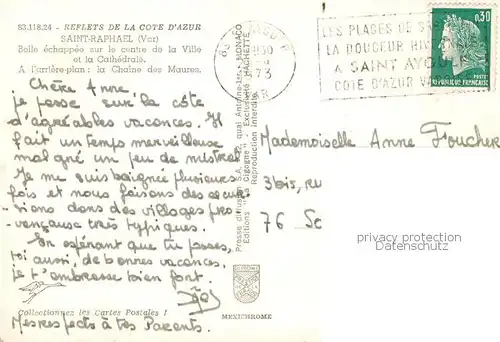 83.118.24 - REFLETS DE LA COTE D'AZUR
SAINT-RAPHAEL (Var)
Belle échappée sur le centre de la Ville
et la Cathédrale.
A l'arrière-plan : la Chaîne des Maures.
Chère Anne,
je passe sur la côte
d'agréables vacances. Il
fait un temps merveilleuse
malgré un peu de mistral
Je me suis baignée plusieurs
fois et nous faisons des excur-
sions dans des villages pro
vençaux très typiques.
En espérant que tu passes,
toi aussi, de bonnes vacances,
je t'embrasse bien fort.
Collectionnez les Cartes Postales !
Mes respects à tes Parents.
MEXICHROME
Reproduction interdite
LES PLAGES DE
LA DOUCEUR
A SAINT AYGU
COTE D'AZUR
0,30
POSTES
REPUBLIQUE FRANCAISE
Mademoiselle Anne Foucher
3bis, ru
76
privacy protection
Datenschutz